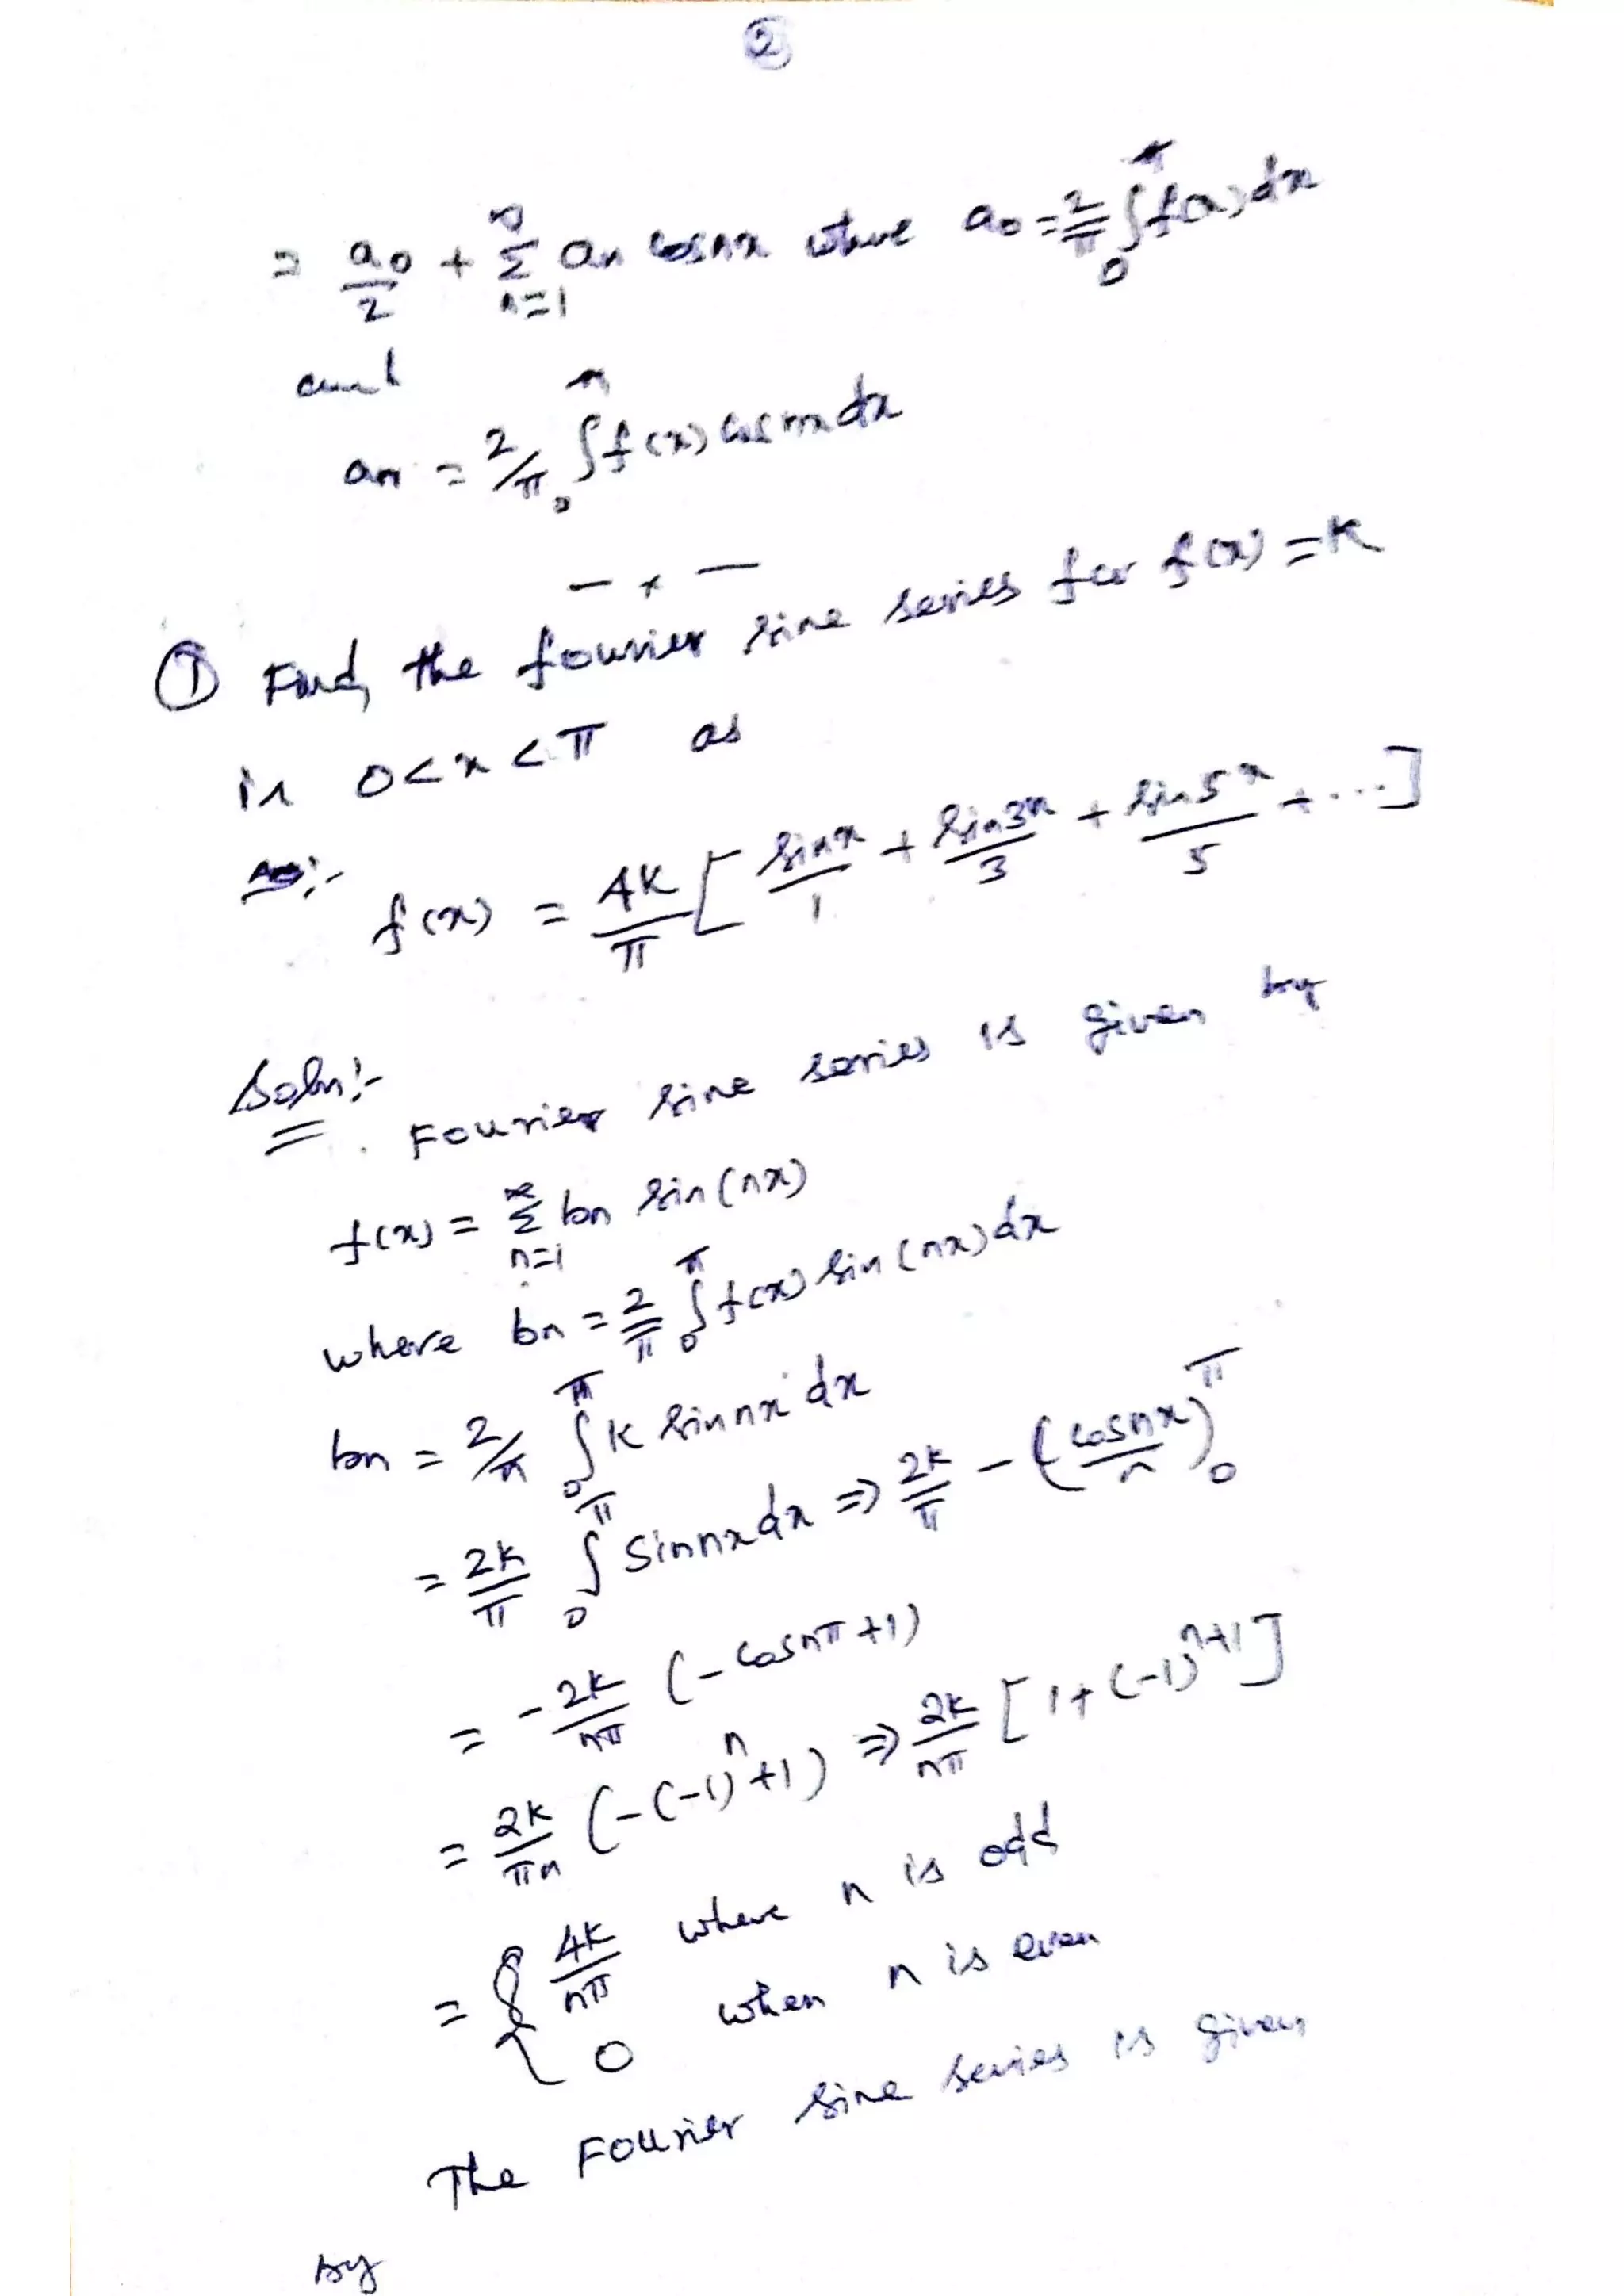 ②
= a₀/2 + ∞Σn=1 an cosnx where a₀ = 2/π ∫₀^π f(x)dx
and
an = 2/π ∫₀^π f(x) cosnxdx
— x —
① Find, the fourier sine series for f(x) = K
in 0<x<π as
Ans:- f(x) = 4K/π [ sinx/1 + sin3x/3 + sin5x/5 + ...]
Soln:-
Fourier sine series is given by
f(x) = ∞Σn=1 bn sin(nx)
where bn = 2/π ∫₀^π f(x) sin(nx)dx
bn = 2/π ∫₀^π K sinnx dx
= 2K/π ∫₀^π Sinnxdx ⇒ 2K/π - (cosnx/n)₀^π
= -2K/nπ (-cosnπ+1)
= 2K/πn (-(-1)^n+1) ⇒ 2K/nπ [1+(-1)^n+1]
= { 4K/nπ where n is odd
0 when n is even
The Fourier sine series is given
by